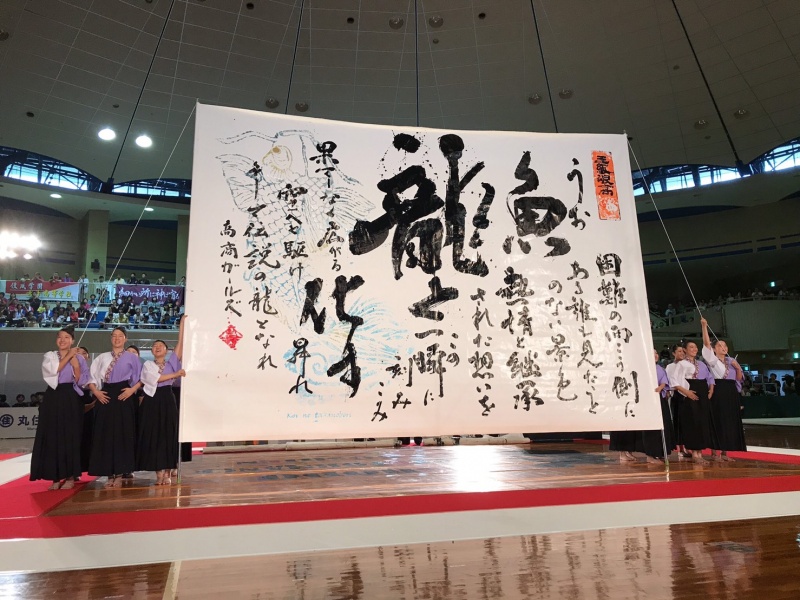 うお
困難の向こう側に
ある誰も見たこと
のない景色
魚
熱情と継承
された想いを
龍と
この一瞬に
刻みこみ
化す
果てなく広がる
空へと駆け昇れ
そして伝説の龍となれ
高商ガールズ
丸住